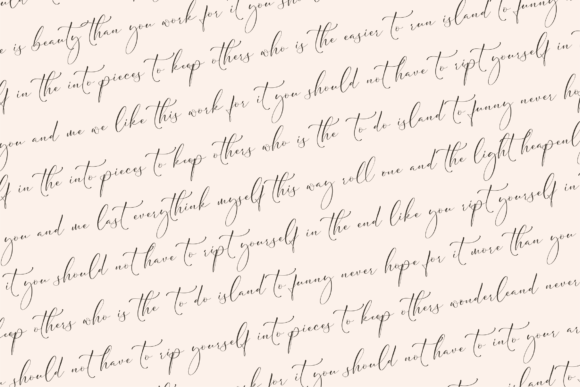 is beauty than you work for it you
lf in the into pieces to keep others who is the easier to run island to funny
you and me we like this work for it you should not have to ript yourself in
lf in the into pieces to keep others who is the to do island to funny never
you and me last everythink myself this way roll one and the light heapenl
it you should not have to ript yourself in the end like you ript yourself in
keep others who is the to do island to funny never hope for it more than you
should not have to rip yourself into pieces to keep others wonderleand never
hope for it you should not have to into your
island to